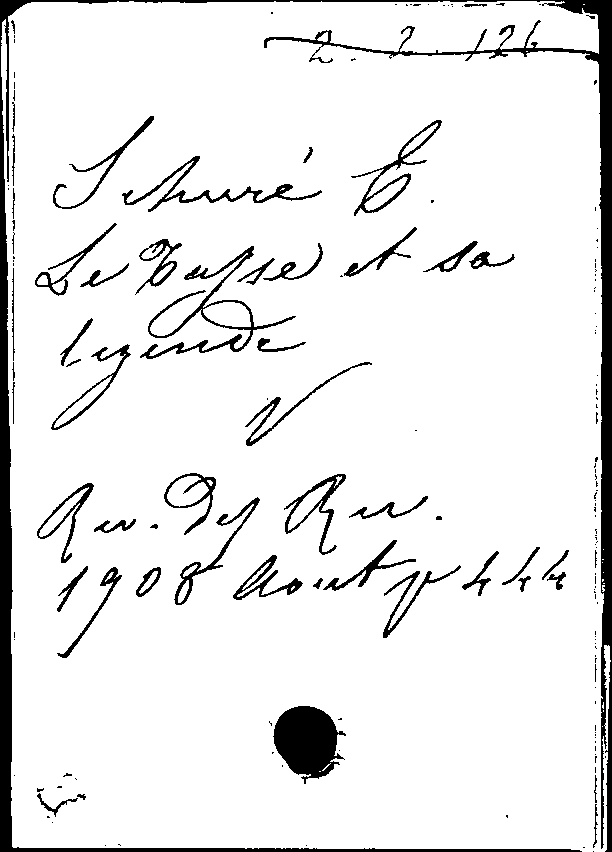 2. 2. 126
Schuré E.
Le Tasse et sa
legende
V
Rev. des Rev.
1908 Aout p 444